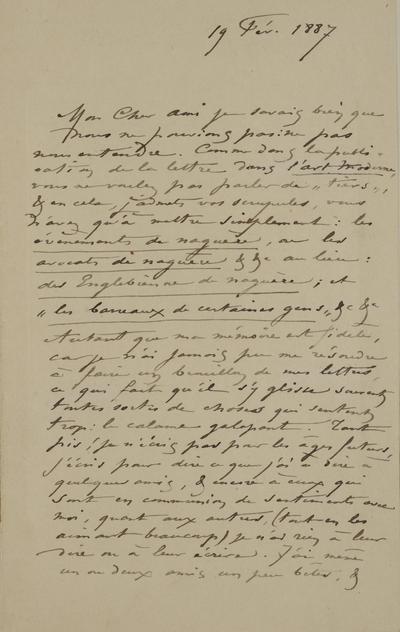 19 Fév. 1887
Mon Cher ami je savais bien que
nous ne pouvions pas ne pas
nous entendre. Comme dans la publi-
cation de la lettre dans l'art moderne,
vous ne voulez pas parler de „tiers",
& en cela, j'admets vos scrupules, vous
n'avez qu'à mettre simplement : les
évènements de naguère, ou les
avocats de naguère & &c au lieu :
des Englebienne de naguère ; et
„les barreaux de certaines gens" &c &c
Autant que ma mémoire est fidèle,
car je n'ai jamais pu me resoudre
à faire un brouillon de mes lettres
ce qui fait qu'il s'y glisse souvent
toutes sortes de choses qui sentent
trop : le calame galopant. Tant
pis ! je n'écris pas pour les ages futurs,
j'écris pour dire ce que j'ai à dire à
quelques amis, & encore à ceux qui
sont en communion de sentiments avec
moi, quant aux autres, (tout en les
aimant beaucoup) je n'ai rien à leur
dire ou à leur écrire. J'ai même
un ou deux amis un peu bêtes, &